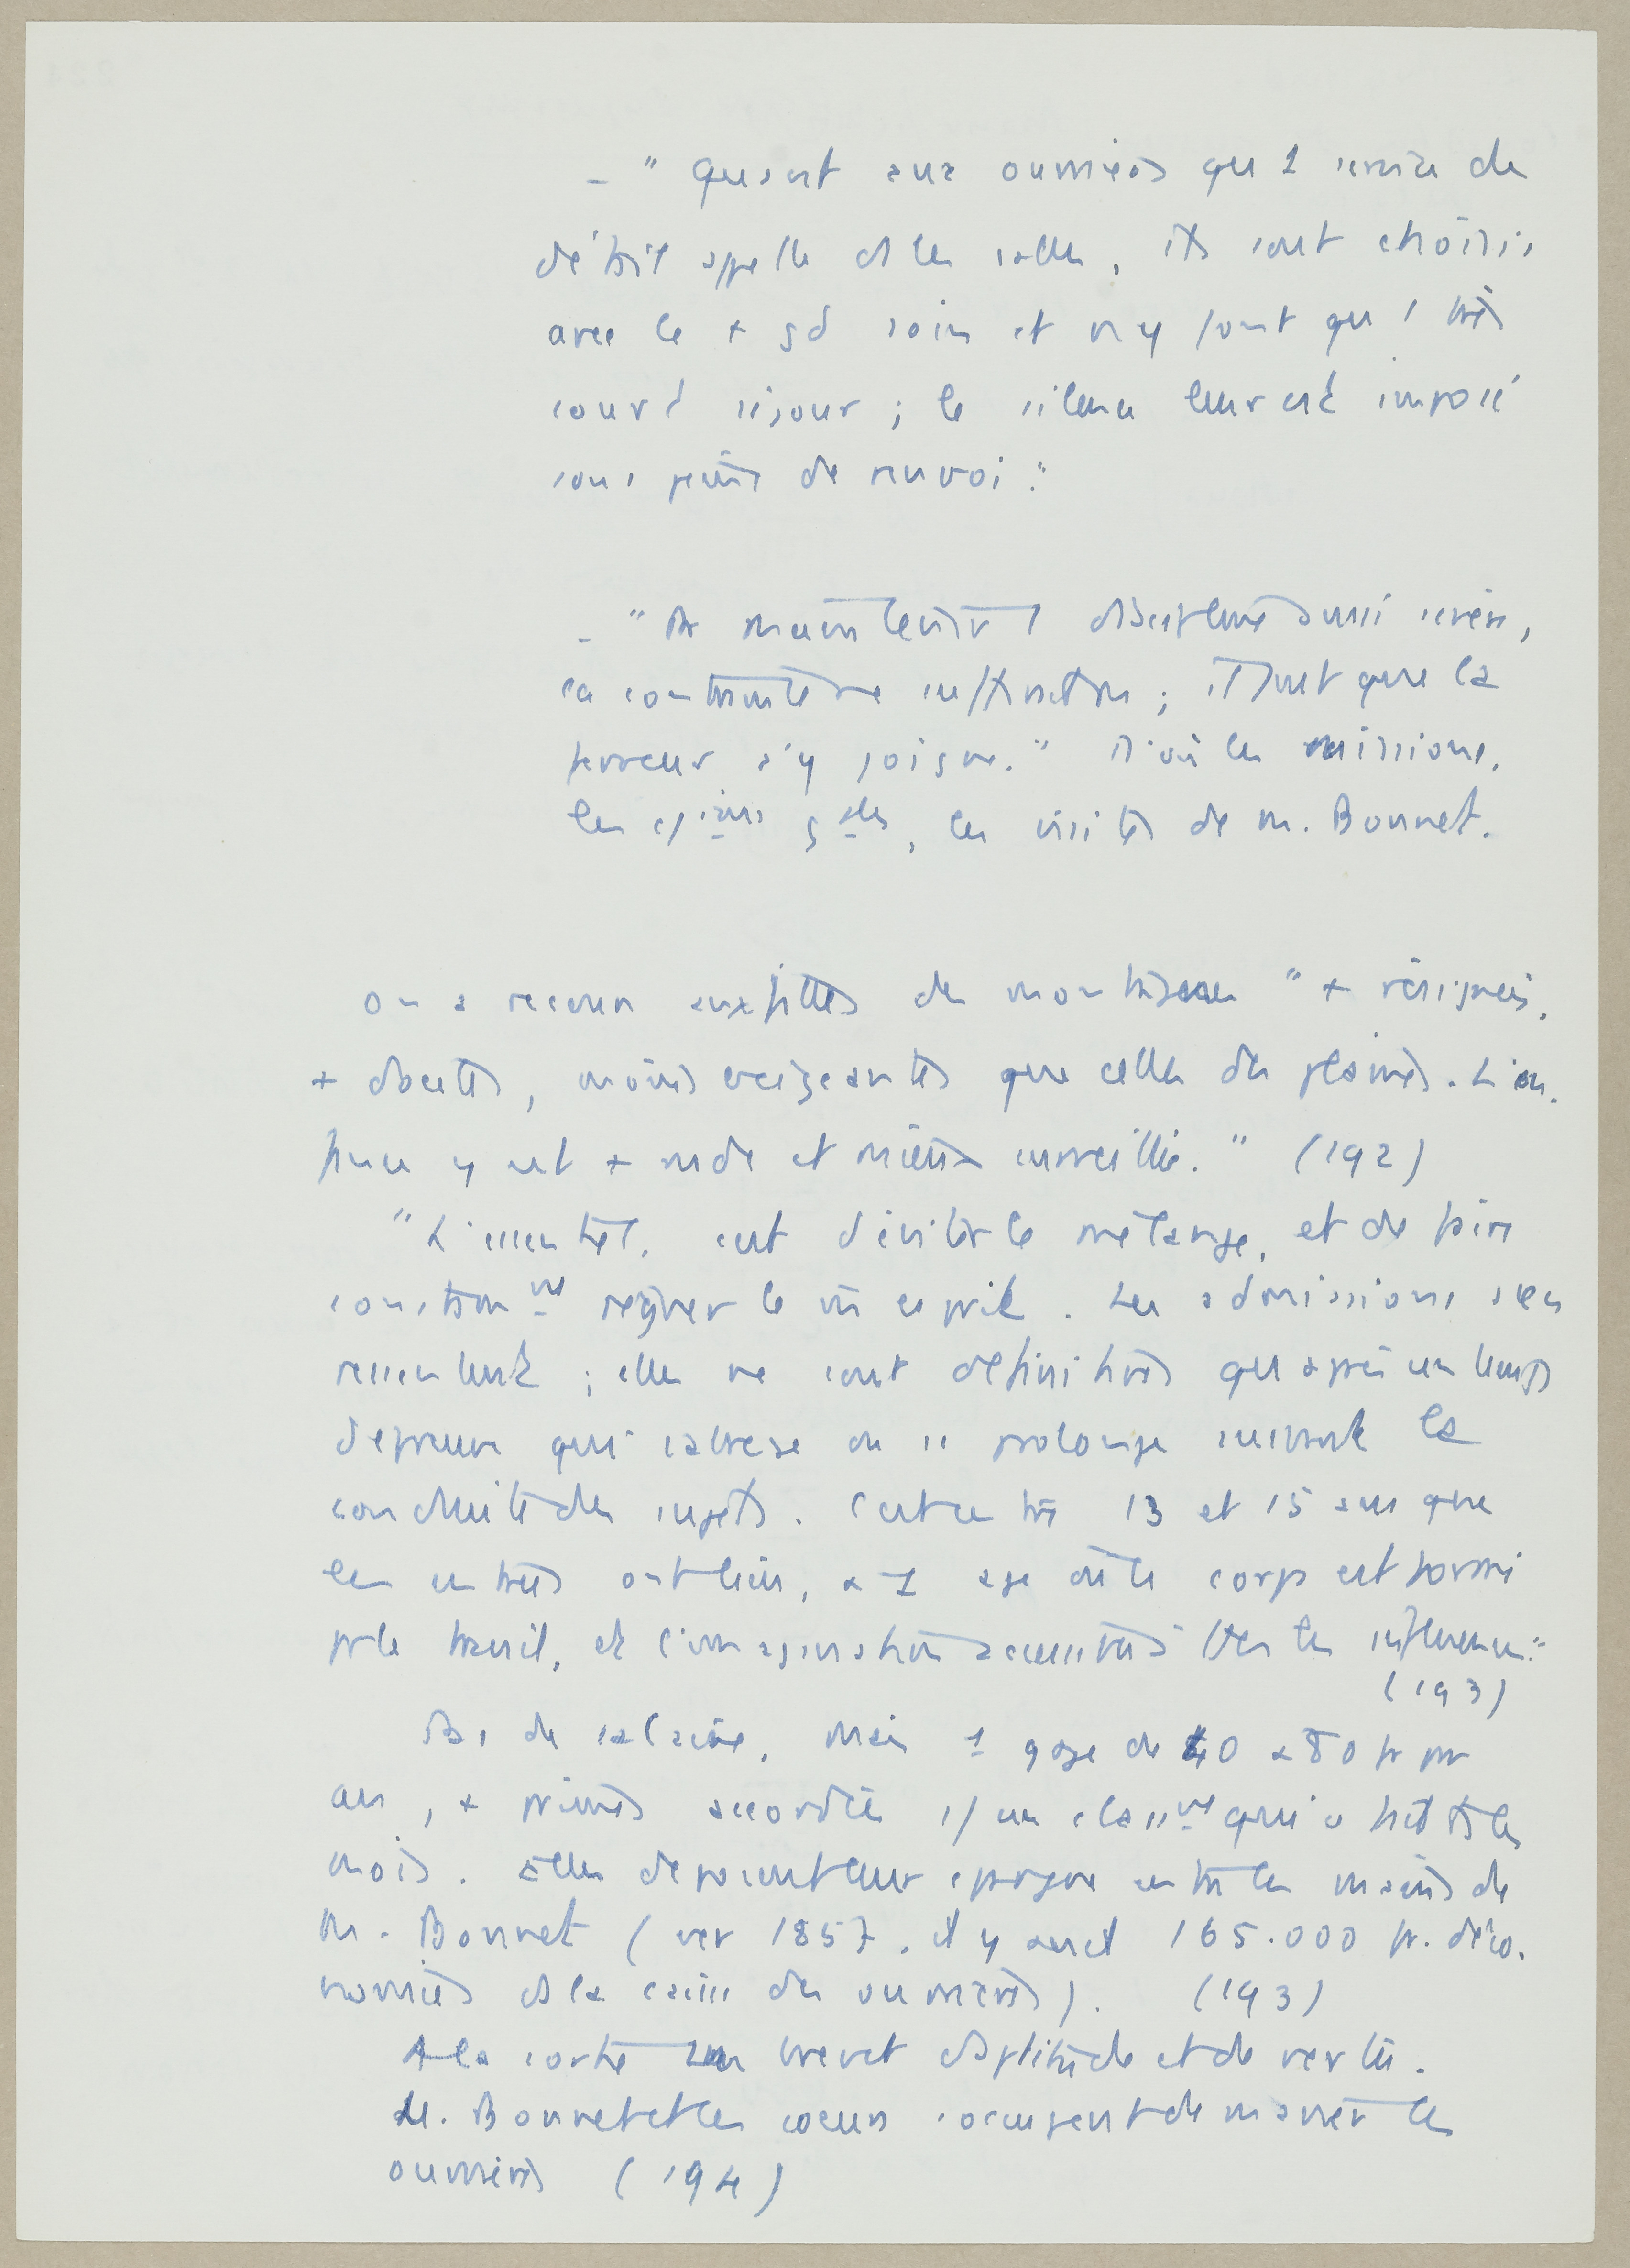 - " Quant aux ouvriers qu 1 service de
détail appelle ds les salles, ils sont choisis
avec le + gd soin et n'y font qu 1 très
court séjour ; le silence leur est imposé
sous peine de renvoi."
- " Pr maintenir 1 discipline aussi sévère,
la contrainte ne suffirait pas ; il faut que la
ferveur s'y joigne." D'où les missions,
les c/ions gales, les visites de M. Bonnet.
On a recours aux filles des montagnes " + résignées,
+ dociles, moins exigeantes que celles des plaines. L'en-
fance y est + rude et mieux surveillée." (192)
" L'essentiel, est d'éviter le mélange, et de faire
constamnt régner le m̂ esprit. Les admissions s'en
ressentent ; elles ne sont définitives qu'après un temps
d'épreuve qui s'abrège ou se prolonge suivant la
conduite des sujets. C'est entre 13 et 15 ans que
les entrées ont lieu, à 1 âge où le corps est formé
pr le travail, et l'imagination accessible à ttes les influences."
(193)
Pas de salaire, mais 1 gage de 40 à 80 fr par
an, + primes accordées s/ un classnt qui se fait ts les
mois. Elles déposent leur épargne entre les mains de
M. Bonnet (vers 1857, il y avait 165.000 fr. d'éco-
nomies ds la caisse des ouvrières). (193)
A la sortie un brevet d'aptitude et de vertu.
M. Bonnet et les soeurs s'occupent de marier les
ouvrières (194)